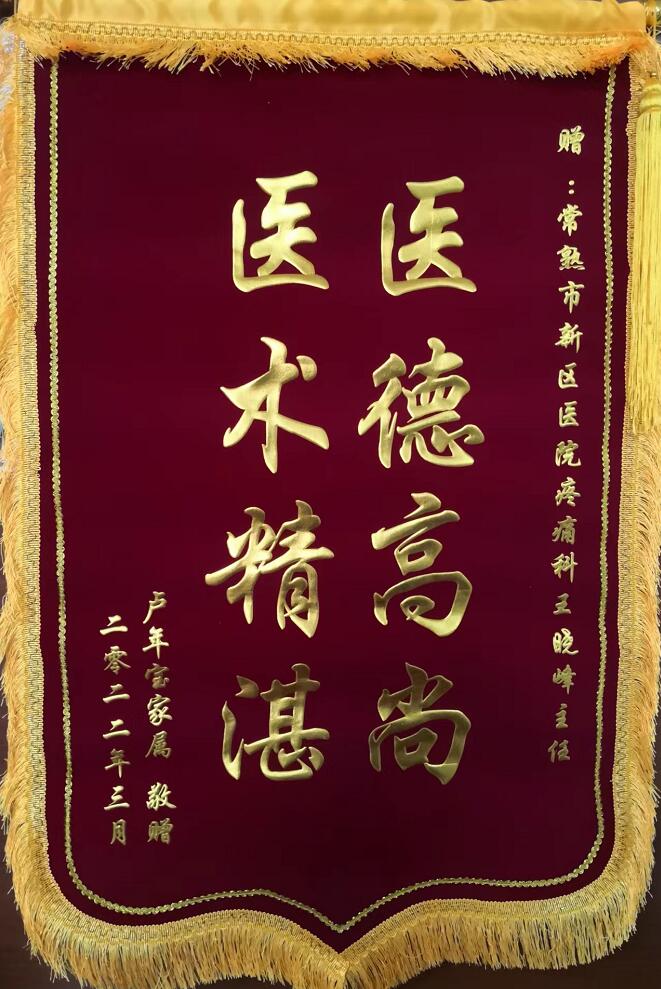 赠：常熟市新区医院疼痛科王晓峰主任
医德高尚
医术精湛
卢年宝家属 敬赠
二零二二年三月